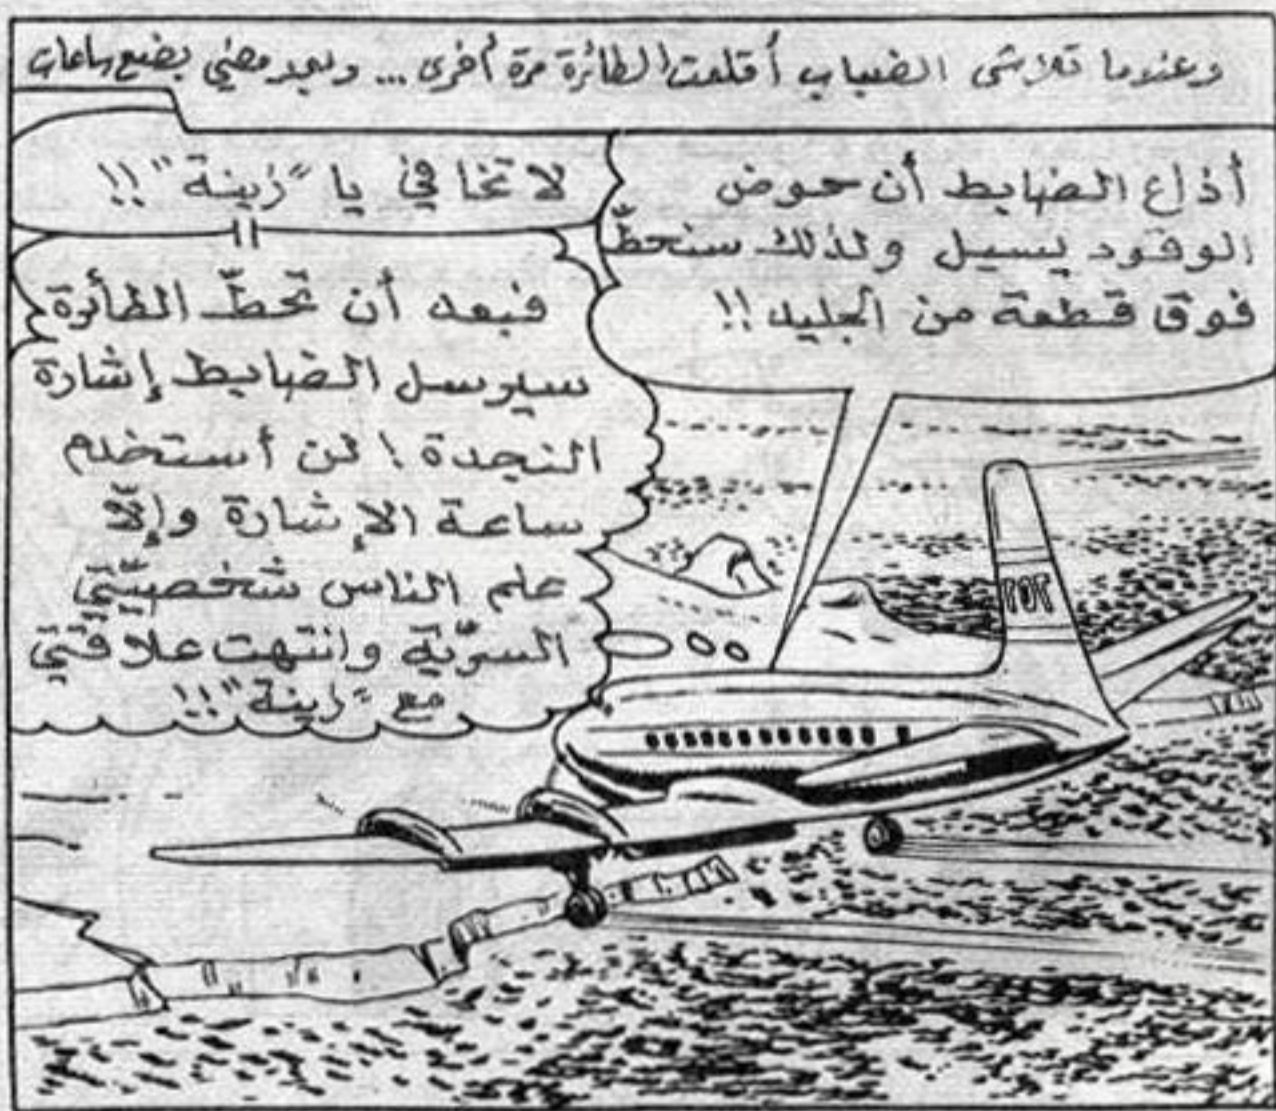 وعندما تلاشى الضباب أقلعت الطائرة مرة أخرى... وبعد مضي بضع ساعات
أذاع الضابط أن حوض
الوقود يسيل ولذلك سنحطّ
فوق قطعة من الجليد!!
لا تخافي يا "زينة"!!
فبعد أن تحطّ الطائرة
سيرسل الضابط إشارة
النجدة! لن أستخدم
ساعة الإشارة وإلّا
علم الناس شخصيّتي
السرّيّة وانتهت علاقتي
مع "زينة"!!